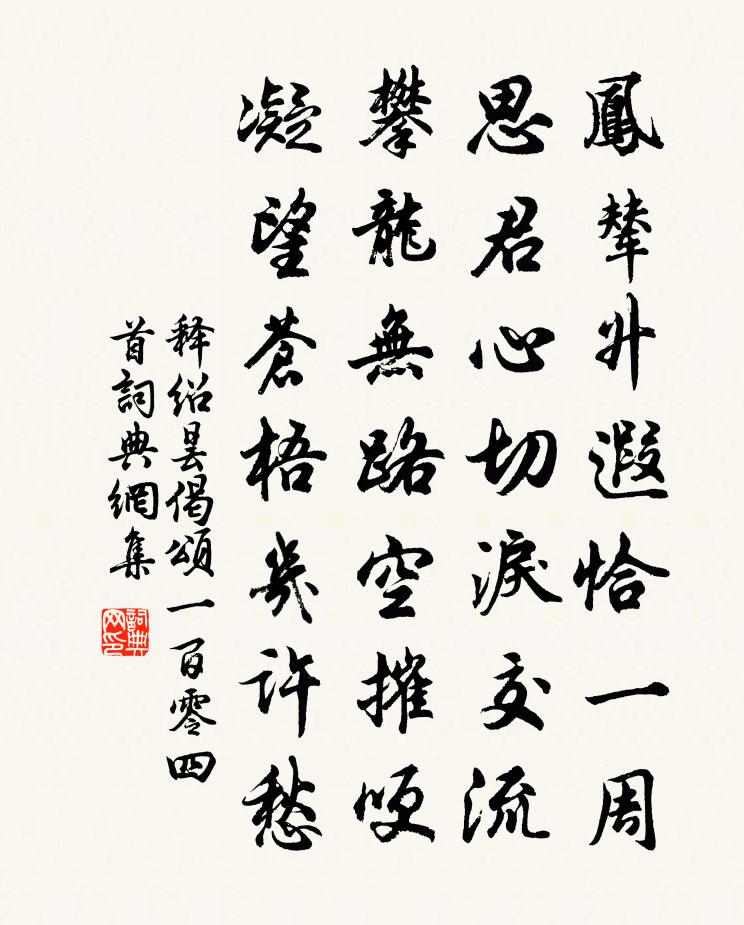 鳳輦升遐恰一周
思君心切淚交流
攀龍無路空摧哽
凝望蒼梧幾許愁
释绍昙偈頌一百零四
首詞典網集
詞典网印